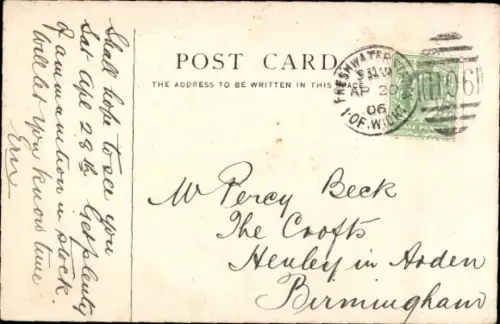 Shall hope to see you
Sat Apl 28th Get plenty
of ammunition in stock.
Will let you know time
Ern
POST CARD
THE ADDRESS TO BE WRITTEN IN THIS SPACE
FRESHWATER
AP 20
06
I. OF. WIGHT
Mr Percy Beck
The Crofts
Henley in Arden
Birmingham